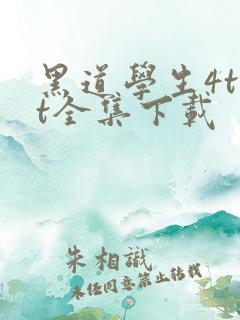 黑道學生4t
t全集下載
朱相識
未经同意禁止转载